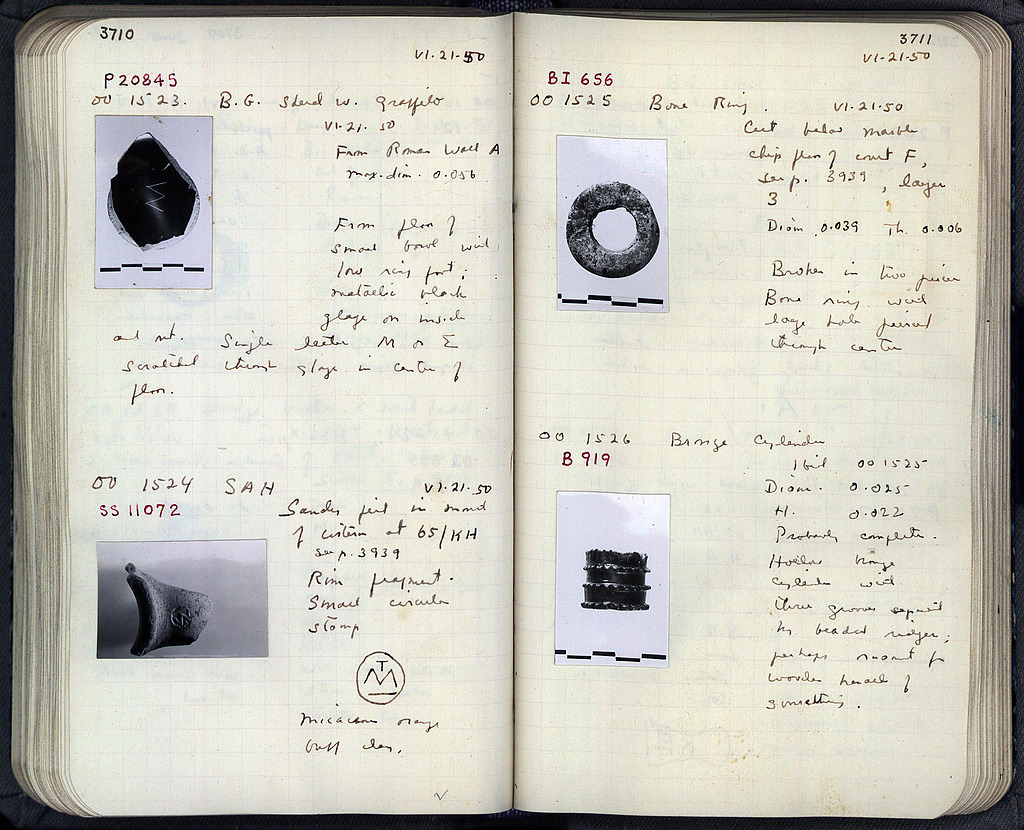 3710
VI-21-50
P 20845
OO 1523. B.G. Sherd w. graffito
VI-21.50
From Roman Wall A
max. dim. 0.056
From floor of
small bowl with
low ring foot;
metallic black
glaze on inside
and out. Single letter M or Σ
scratched through glaze in center of
floor.
OO 1524 SAH
VI-21.50
SS 11072
Sandy fill in mouth
of cistern at 65/KH
see p. 3939
Rim fragment.
Small circular
stamp
TM
micaceous orange
buff clay.
3711
VI-21-50
BI 656
OO 1525 Bone Ring. VI-21.50
Cut below marble
chip floor of court F,
see p. 3939, layer
3
Diam. 0.039 Th. 0.006
Broken in two pieces
Bone ring with
large hole pierced
through center
OO 1526 Bronze Cylinder
B 919
Ibid OO 1525
Diam. 0.025
H. 0.022
Probably complete.
Hollow bronze
cylinder with
three grooves separated
by beaded ridges;
perhaps mount for
wooden handle of
something.